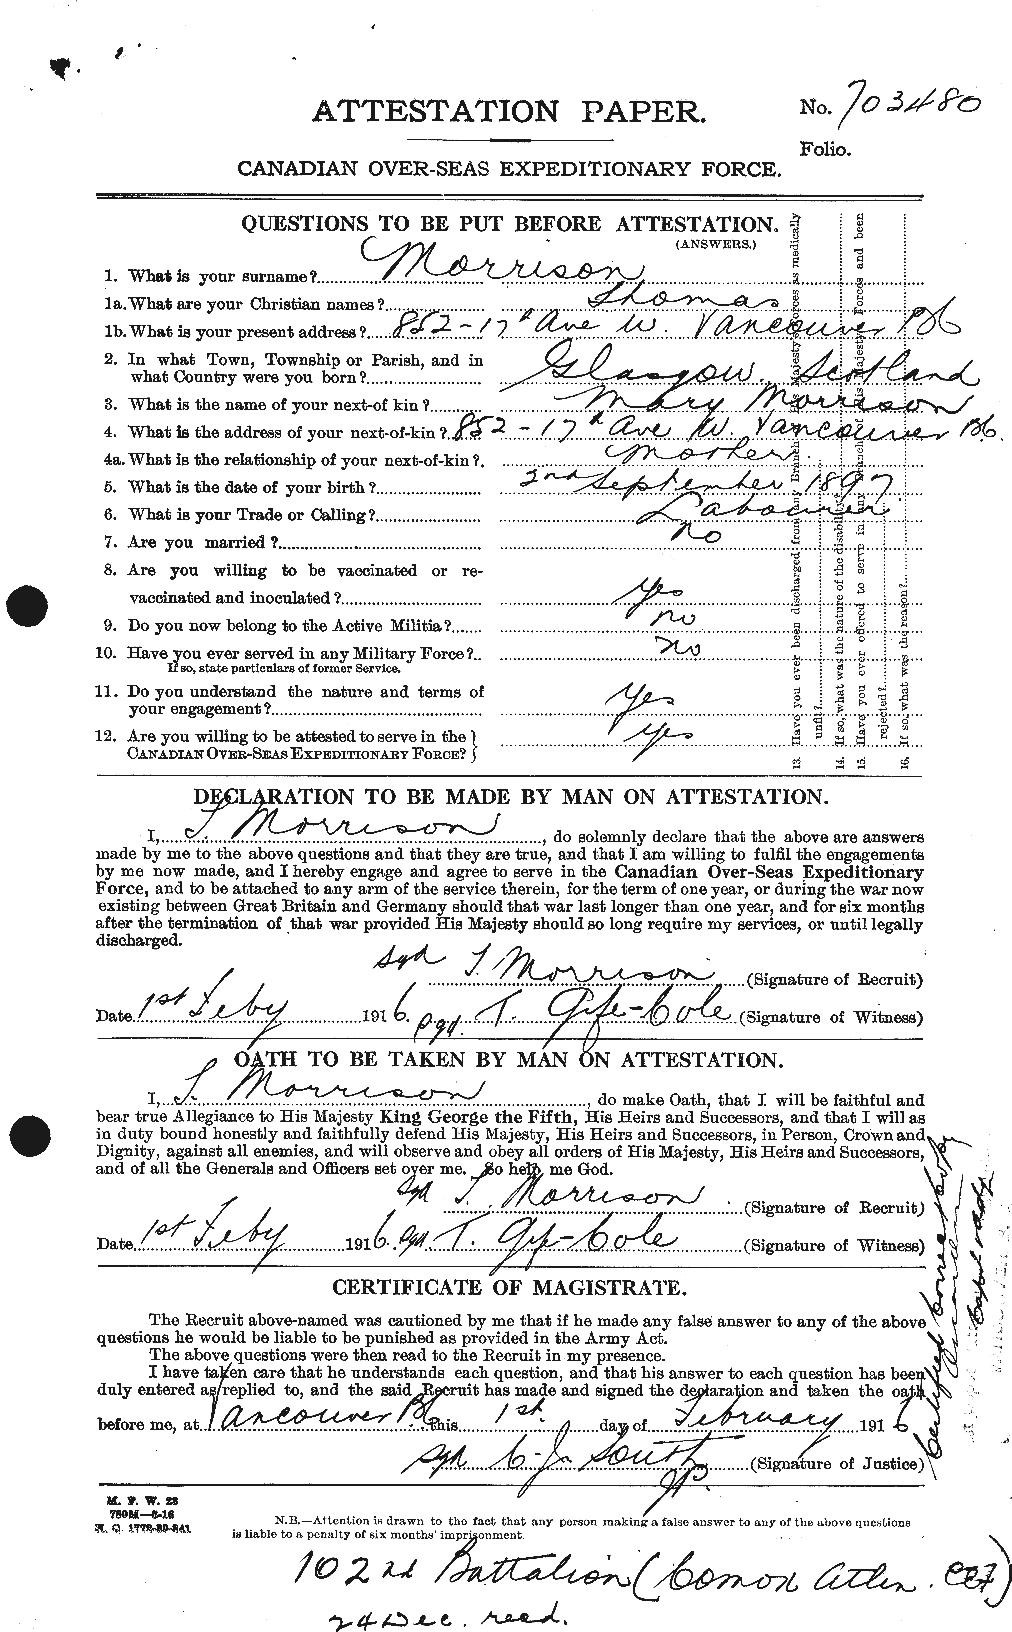 ATTESTATION PAPER.
No. 703480
Folio.
CANADIAN OVER-SEAS EXPEDITIONARY FORCE.
QUESTIONS TO BE PUT BEFORE ATTESTATION.
(ANSWERS.)
1. What is your surname? Morrison
1a. What are your Christian names? Thomas
1b. What is your present address? 852-17th Ave W. Vancouver BC
2. In what Town, Township or Parish, and in
what Country were you born? Glasgow. Scotland
3. What is the name of your next-of kin? Mary Morrison
4. What is the address of your next-of-kin? 852-17th Ave W. Vancouver BC.
4a. What is the relationship of your next-of-kin? Mother.
5. What is the date of your birth? 2nd September 1897
6. What is your Trade or Calling? Labourer
7. Are you married? No
8. Are you willing to be vaccinated or re-
vaccinated and inoculated? Yes
9. Do you now belong to the Active Militia? No
10. Have you ever served in any Military Force? No
If so, state particulars of former Service.
11. Do you understand the nature and terms of
your engagement? Yes
12. Are you willing to be attested to serve in the
CANADIAN OVER-SEAS EXPEDITIONARY FORCE? Yes
13. Have you ever been discharged from any Branch of His Majesty's Forces as medically
unfit?
14. If so, what was the nature of the disability?
15. Have you ever offered to serve in any Branch of His Majesty's Forces and been
rejected?
16. If so, what was the reason?
DECLARATION TO BE MADE BY MAN ON ATTESTATION.
I, T. Morrison, do solemnly declare that the above are answers
made by me to the above questions and that they are true, and that I am willing to fulfil the engagements
by me now made, and I hereby engage and agree to serve in the Canadian Over-Seas Expeditionary
Force, and to be attached to any arm of the service therein, for the term of one year, or during the war now
existing between Great Britain and Germany should that war last longer than one year, and for six months
after the termination of that war provided His Majesty should so long require my services, or until legally
discharged.
Sgd T. Morrison (Signature of Recruit)
Date 1st Feby 1916. Sgd. T. Gyfe-Cole (Signature of Witness)
OATH TO BE TAKEN BY MAN ON ATTESTATION.
I, T. Morrison, do make Oath, that I will be faithful and
bear true Allegiance to His Majesty King George the Fifth, His Heirs and Successors, and that I will as
in duty bound honestly and faithfully defend His Majesty, His Heirs and Successors, in Person, Crown and
Dignity, against all enemies, and will observe and obey all orders of His Majesty, His Heirs and Successors,
and of all the Generals and Officers set over me. So help me God.
Sgd T. Morrison (Signature of Recruit)
Date 1st Feby 1916. Sgd T. Gyfe-Cole (Signature of Witness)
CERTIFICATE OF MAGISTRATE.
The Recruit above-named was cautioned by me that if he made any false answer to any of the above
questions he would be liable to be punished as provided in the Army Act.
The above questions were then read to the Recruit in my presence.
I have taken care that he understands each question, and that his answer to each question has been
duly entered as replied to, and the said Recruit has made and signed the declaration and taken the oath
before me, at Vancouver BC this 1st. day of February 1916
Sgd C. J. South JP. (Signature of Justice)
Certified Correct Copy
M. F. W. 23
750M—2-16
H. Q. 1772-39-841
N.B.—Attention is drawn to the fact that any person making a false answer to any of the above questions
is liable to a penalty of six months' imprisonment.
102nd Battalion (Comox Atlin. CEF)
24 Dec. recd.